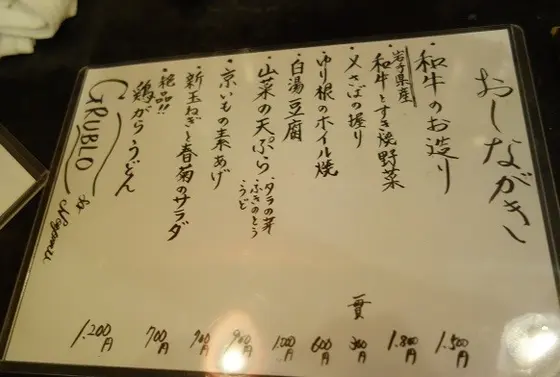 おしながき
・和牛のお造り 1.500円
岩手県産
・和牛とすき焼野菜 1.800円
・〆さばの握り 一貫 300円
・ゆり根のホイル焼 600円
・白湯豆腐 1.000円
・山菜の天ぷら 900円
・タラの芽
・ふきのとう
・うど
・京いもの素あげ
・新玉ねぎと春菊のサラダ 700円
・絶品!!
鶏がらうどん 1.200円
GRUBLO